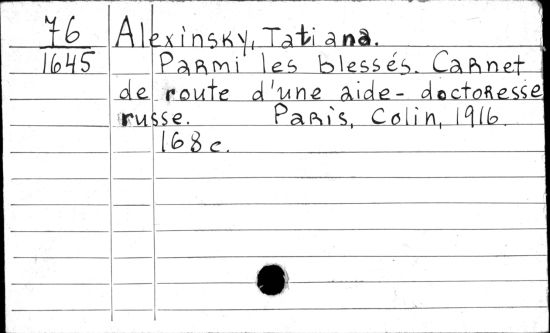 76 Alexinsky, Tatiana.
1645 Parmi les blessés. Carnet
de route d'une aide-doctoresse
russe. Paris, Colin, 1916.
168 c.